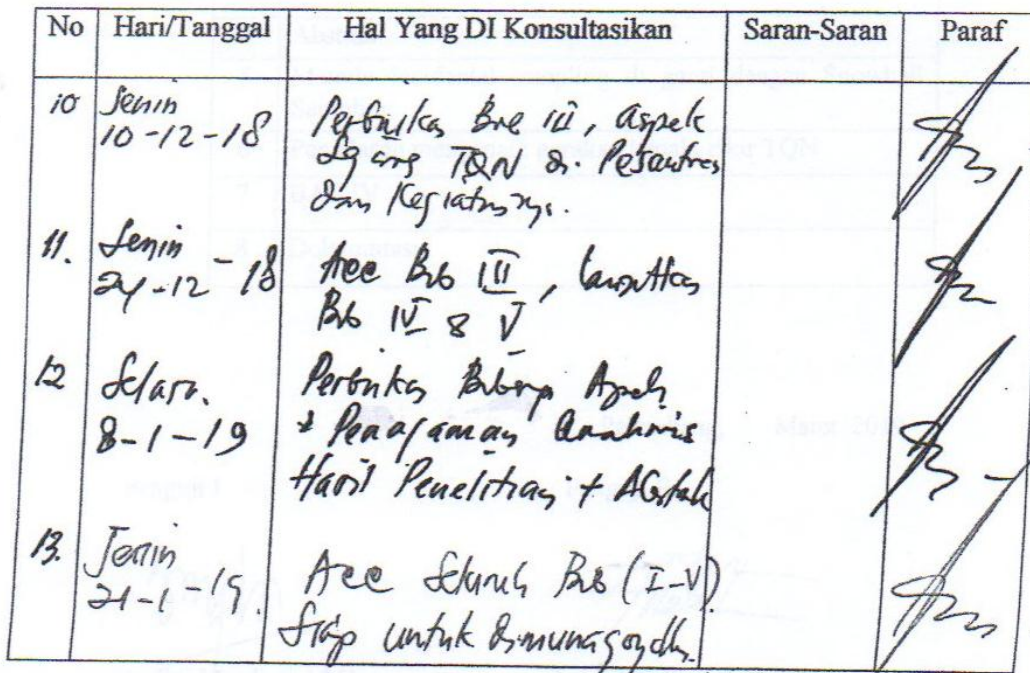 No Hari/Tanggal Hal Yang DI Konsultasikan Saran-Saran Paraf
10 Senin Perbaikan Bab III, Aspek
10-12-18 TQN di Pesantren
dan Kegiatannya.
11. Senin Acc Bab III, lanjutkan
24-12-18 Bab IV & V
12 Selasa. Perbaikan Beberapa Aspek
8-1-19 + Penajaman Analisis
Hasil Penelitian + Abstrak
13. Senin Acc Seluruh Bab (I-V)
21-1-19. Siap untuk dimunaqosyah.